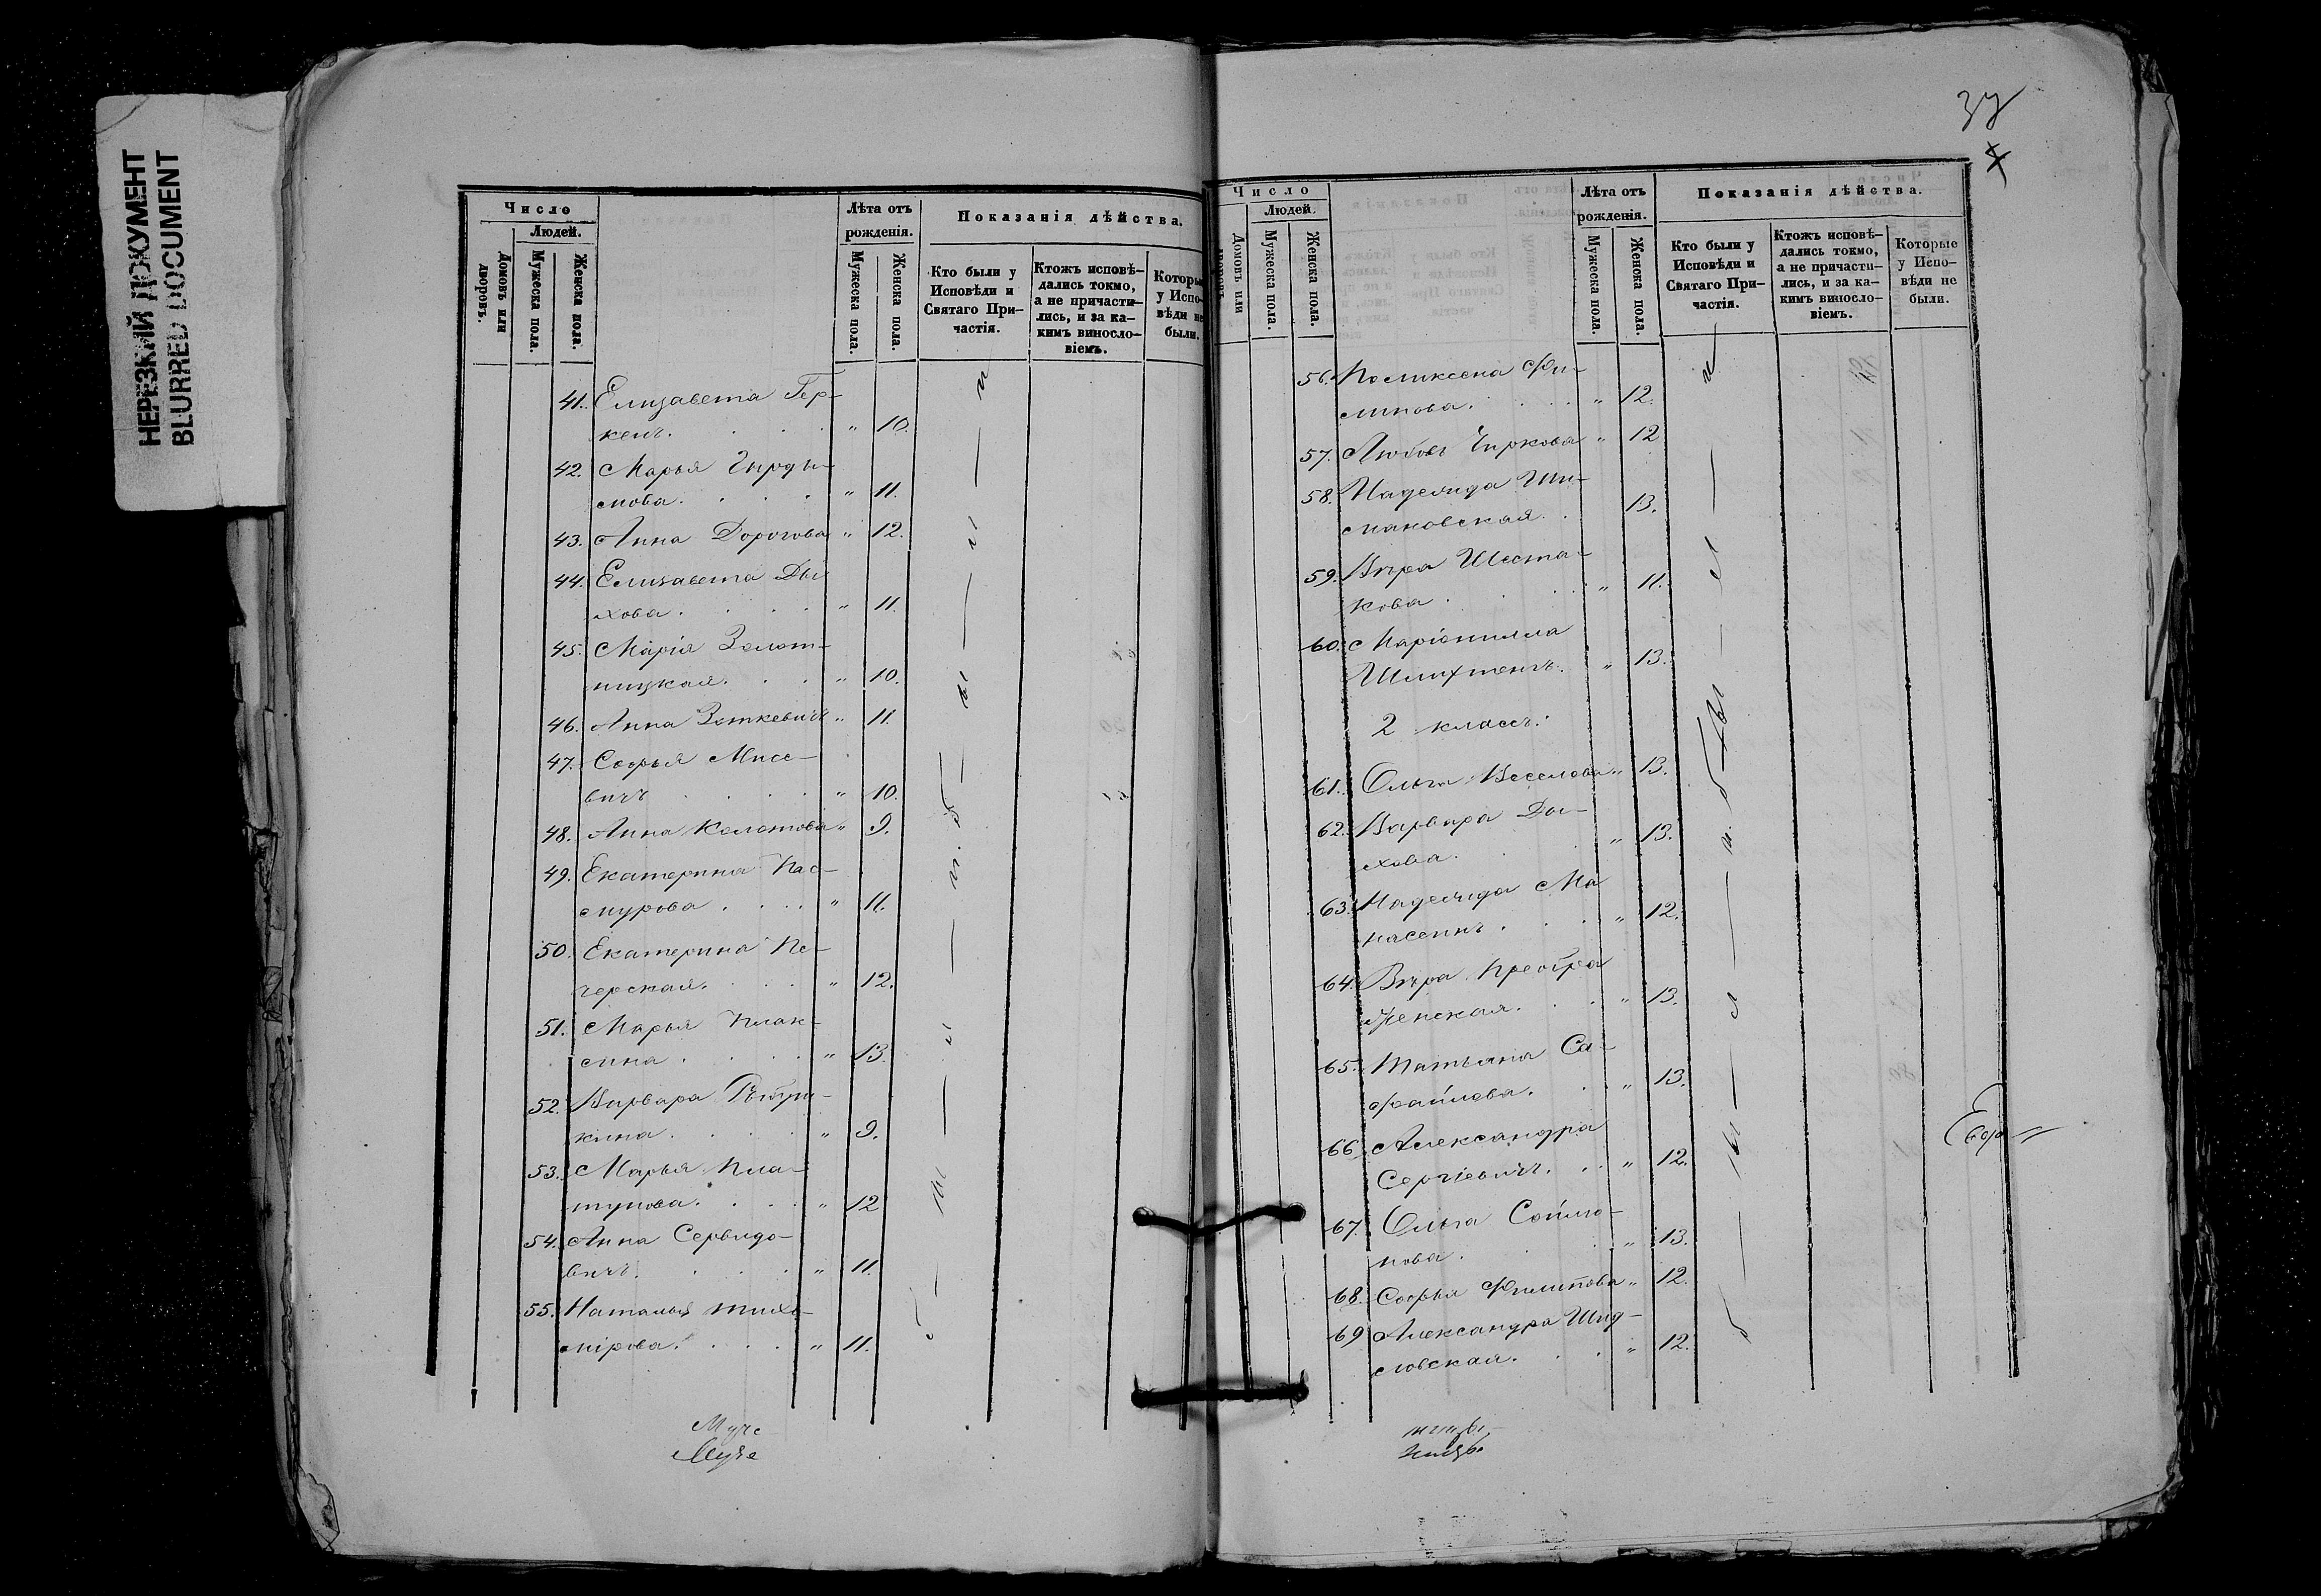 НЕРЕЗКИЙ ДОКУМЕНТ
BLURRED DOCUMENT
Число
Людей.
Домовъ или дворовъ.
Мужеска пола.
Женска пола.
Лѣта отъ рожденія.
Мужеска пола.
Женска пола.
Показанія дѣйства.
Кто были у Исповѣди и Святаго При-
частія.
Ктожъ исповѣ-
дались токмо,
а не причасти-
лись, и за ка-
кимъ виносло-
віемъ.
Которые
у Испо-
вѣди не
были.
41. Елизавета Гер-
кенъ. " 10.
42. Марья
мова. " 11.
43. Анна Дорогова " 12.
44. Елизавета Ды-
хова. " 11.
45. Марія Золот-
ницкая. " 10.
46. Анна Зоткевичъ " 11.
47. Софья Мисе-
вичъ " 10.
48. Анна Колотова " 9.
49. Екатерина Пас-
мурова " 11.
50. Екатерина Пе-
черская. " 12.
51. Марья Плак-
сина " 13.
52. Варвара
кина. " 9.
53. Марья Пла-
тунова. " 12
54. Анна Сервидо-
вичъ. " 11.
55. Наталья Тихо-
мірова. " 11.
37
Число
Людей.
Домовъ или дворовъ.
Мужеска пола.
Женска пола.
Лѣта отъ
рожденія.
Мужеска пола.
Женска пола.
Показанія дѣйства.
Кто были у
Исповѣди и
Святаго При-
частія.
Ктожъ исповѣ-
дались токмо,
а не причасти-
лись, и за ка-
кимъ виносло-
віемъ.
Которые
у Испо-
вѣди не
были.
56. Поликсена Фи-
липова. " 12.
57. Любовь Чиркова " 12
58. Надежда Ши-
мановская. 13.
59. Вѣра Шеста-
кова. " 11.
60. Маріонилла
Шлихтенъ. " 13.
2 классъ.
61. Ольга Веселова " 13.
62. Варвара Ды-
хова. " 13.
63. Надежда Ма
насеинъ. " 12.
64. Вѣра Преобра
женская. " 13.
65. Татьяна Са-
файлова. " 13.
66 Александра
Сергіевичъ. " 12.
67. Ольга Соймо-
нова. " 13.
68. Софья Филипова " 12.
69 Александра Шид-
ловская. " 12.